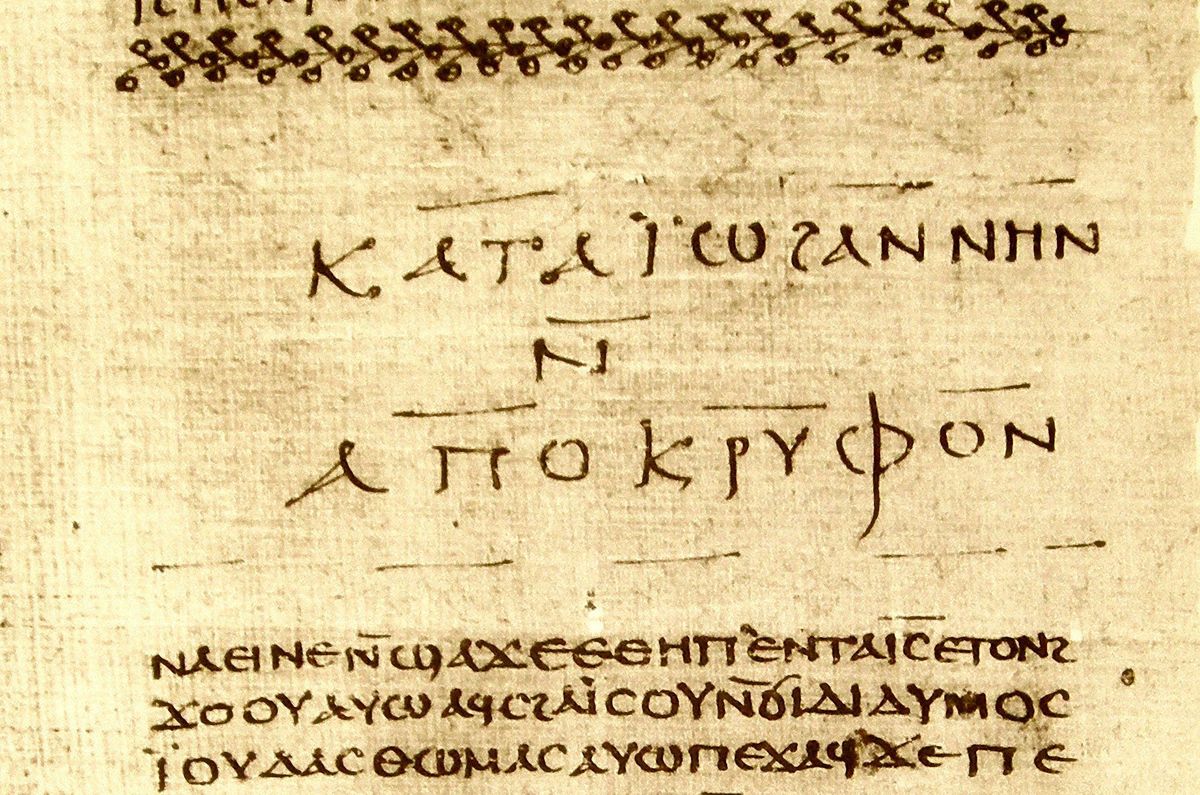 ⲕⲁⲧⲁ ⲓ̈ⲱϩⲁⲛⲛⲏⲛ
ⲛ̄
ⲁⲡⲟⲕⲣⲩⲫⲟⲛ
ⲛⲁⲉⲓⲛⲉⲛ̄ϣⲁϫⲉⲉⲑⲏⲡ`ⲉⲛⲧⲁⲓ̅ⲥ̅ⲉⲧⲟⲛϩ
ϫⲟⲟⲩⲁⲩⲱⲁϥⲥϩⲁⲓ̈ⲥⲟⲩⲛ̄ϭⲓⲇⲓⲇⲩⲙⲟⲥ
ⲓ̈ⲟⲩⲇⲁⲥⲑⲱⲙⲁⲥⲁⲩⲱⲡⲉϫⲁϥϫⲉⲡⲉ